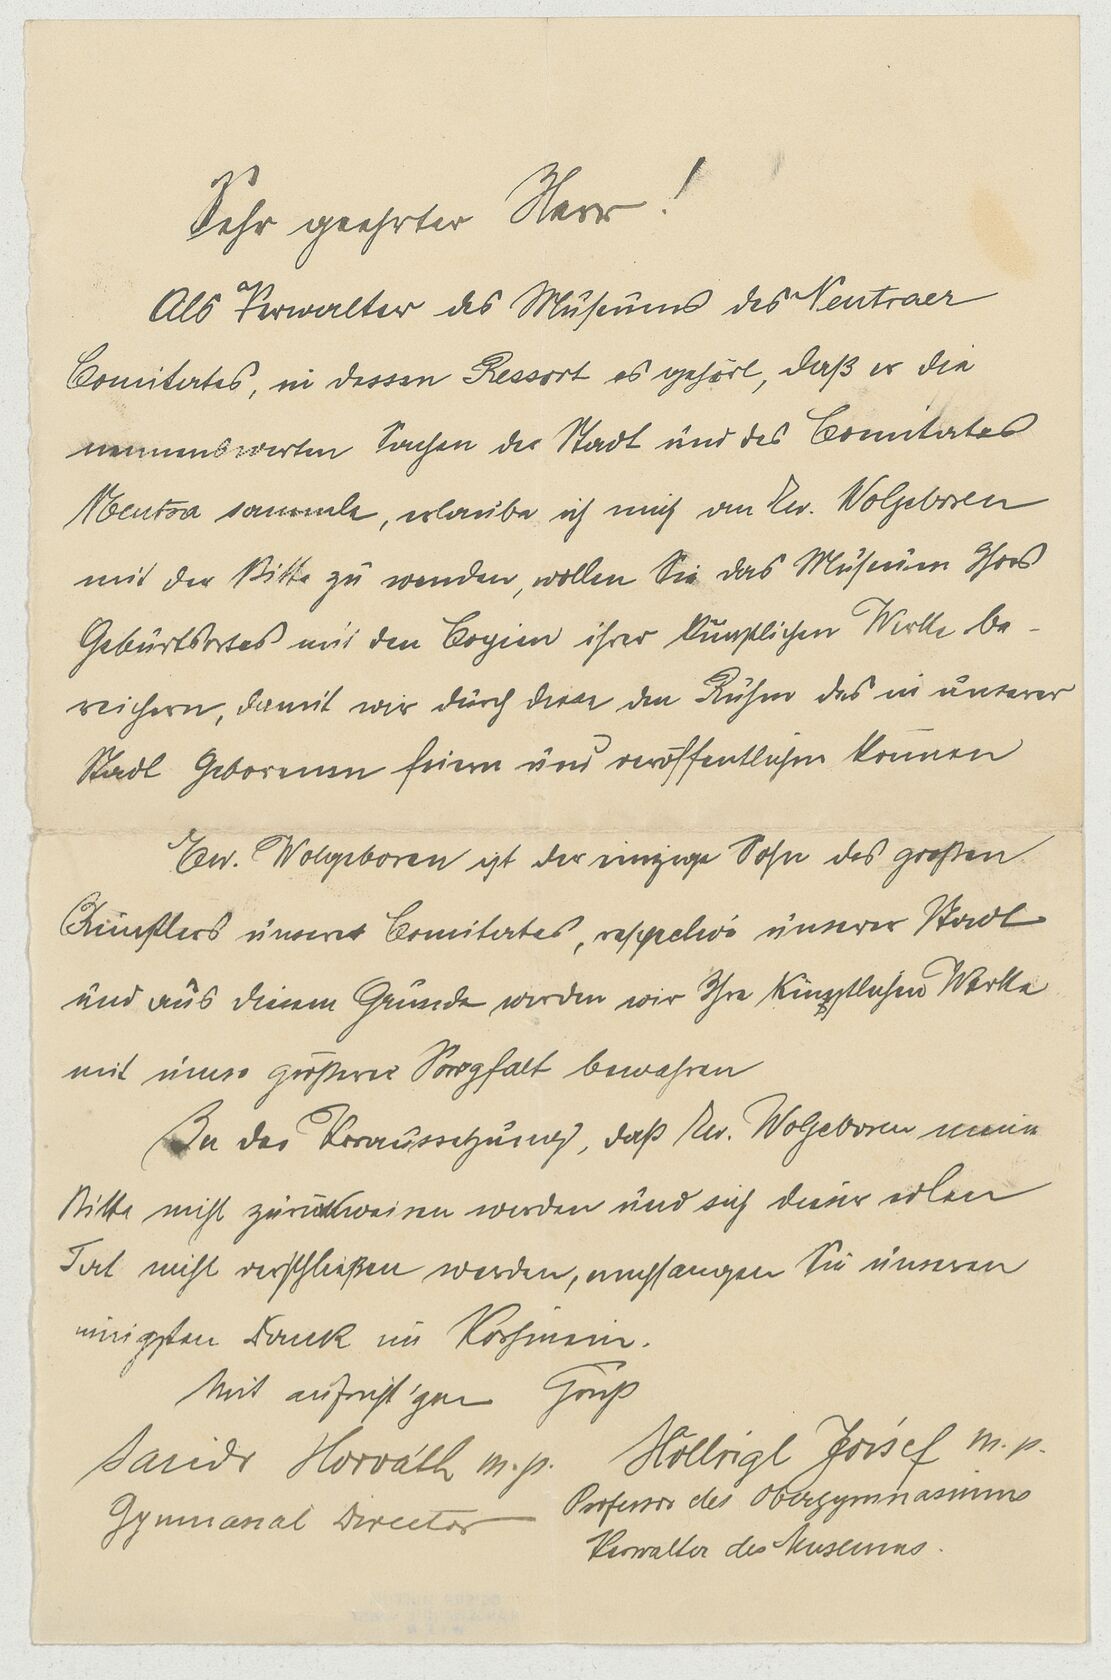 Sehr geehrter Herr!
Als Verwalter des Museums des Neutraer
Comitates, in dessen Ressort es gehört, daß er die
nennenswerten Sachen der Stadt und des Comitates
Neutra sammle, erlaube ich mich an Ew. Wolgeboren
mit der Bitte zu wenden, wollen Sie das Museum Ihres
Geburtsortes mit den Copien ihrer künstlichen Werke be-
reichern, damit wir durch diese den Ruhm des in unserer
Stadt Geborenen feiern und veröffentlichen können
Ew. Wolgeboren ist der einzige Sohn des großen
Künstlers unseres Comitates, respective unserer Stadt
und aus diesem Grunde werden wir Ihre künstlichen Werke
mit umso größerer Sorgfalt bewahren
In der Voraussetzung, daß Ew. Wolgeboren meine
Bitte nicht zurückweisen werden und sich dieser edlen
Tat nicht verschließen werden, empfangen Sie unseren
innigsten Dank im Vorhinein.
Mit aufricht'gen Gruß
Horváth m.p. Höllrigl József m.p.
Gymnasal Director Professor des Obergymnasiums
Verwalter des Museums.